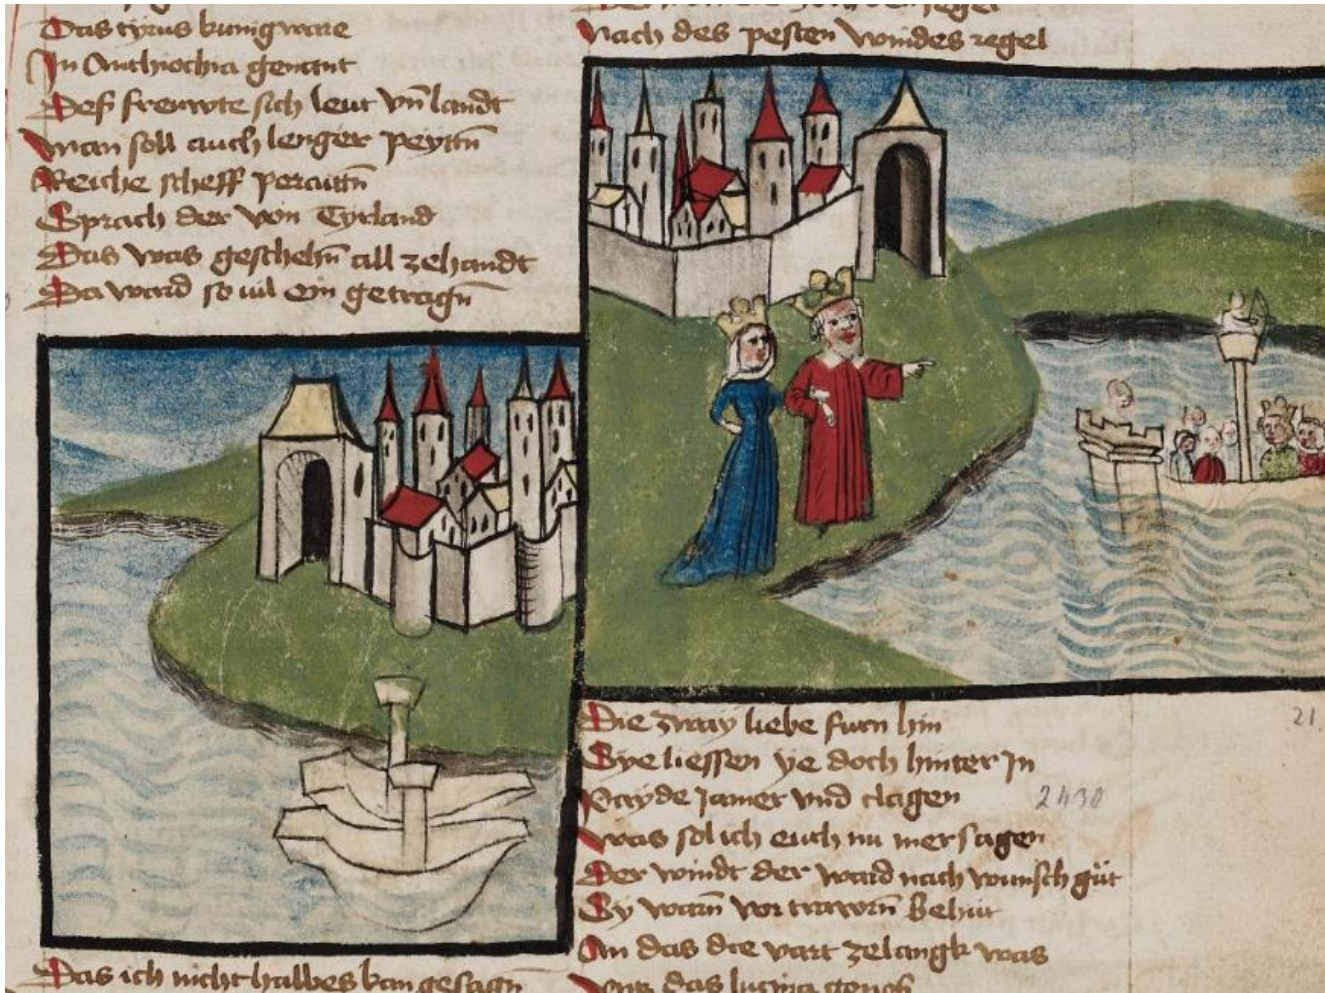 Das tyrus kunig ware
In Anthiochia genant
Des frewte sich leut vn̄ landt
Man soll auch lenger peytn̄
Reiche scheff peraittn̄
Sprach der von Tyrland
Das was geschehn̄ all zehandt
Da ward so uil ein getragn̄
Das ich nicht halbes kan gesagn̄
Nach des pesten windes regel
Die zway liebe furn hin
Sye liessen ye doch hinter in
Payde Jamer vnd clagen
2430
Was sol ich euch nu mer sagen
Der windt der ward nach wunsch gůt
Sy warn̄ vor trawrn̄ behůt
An das die vart zelangk was
Vntz das lucina genas
21